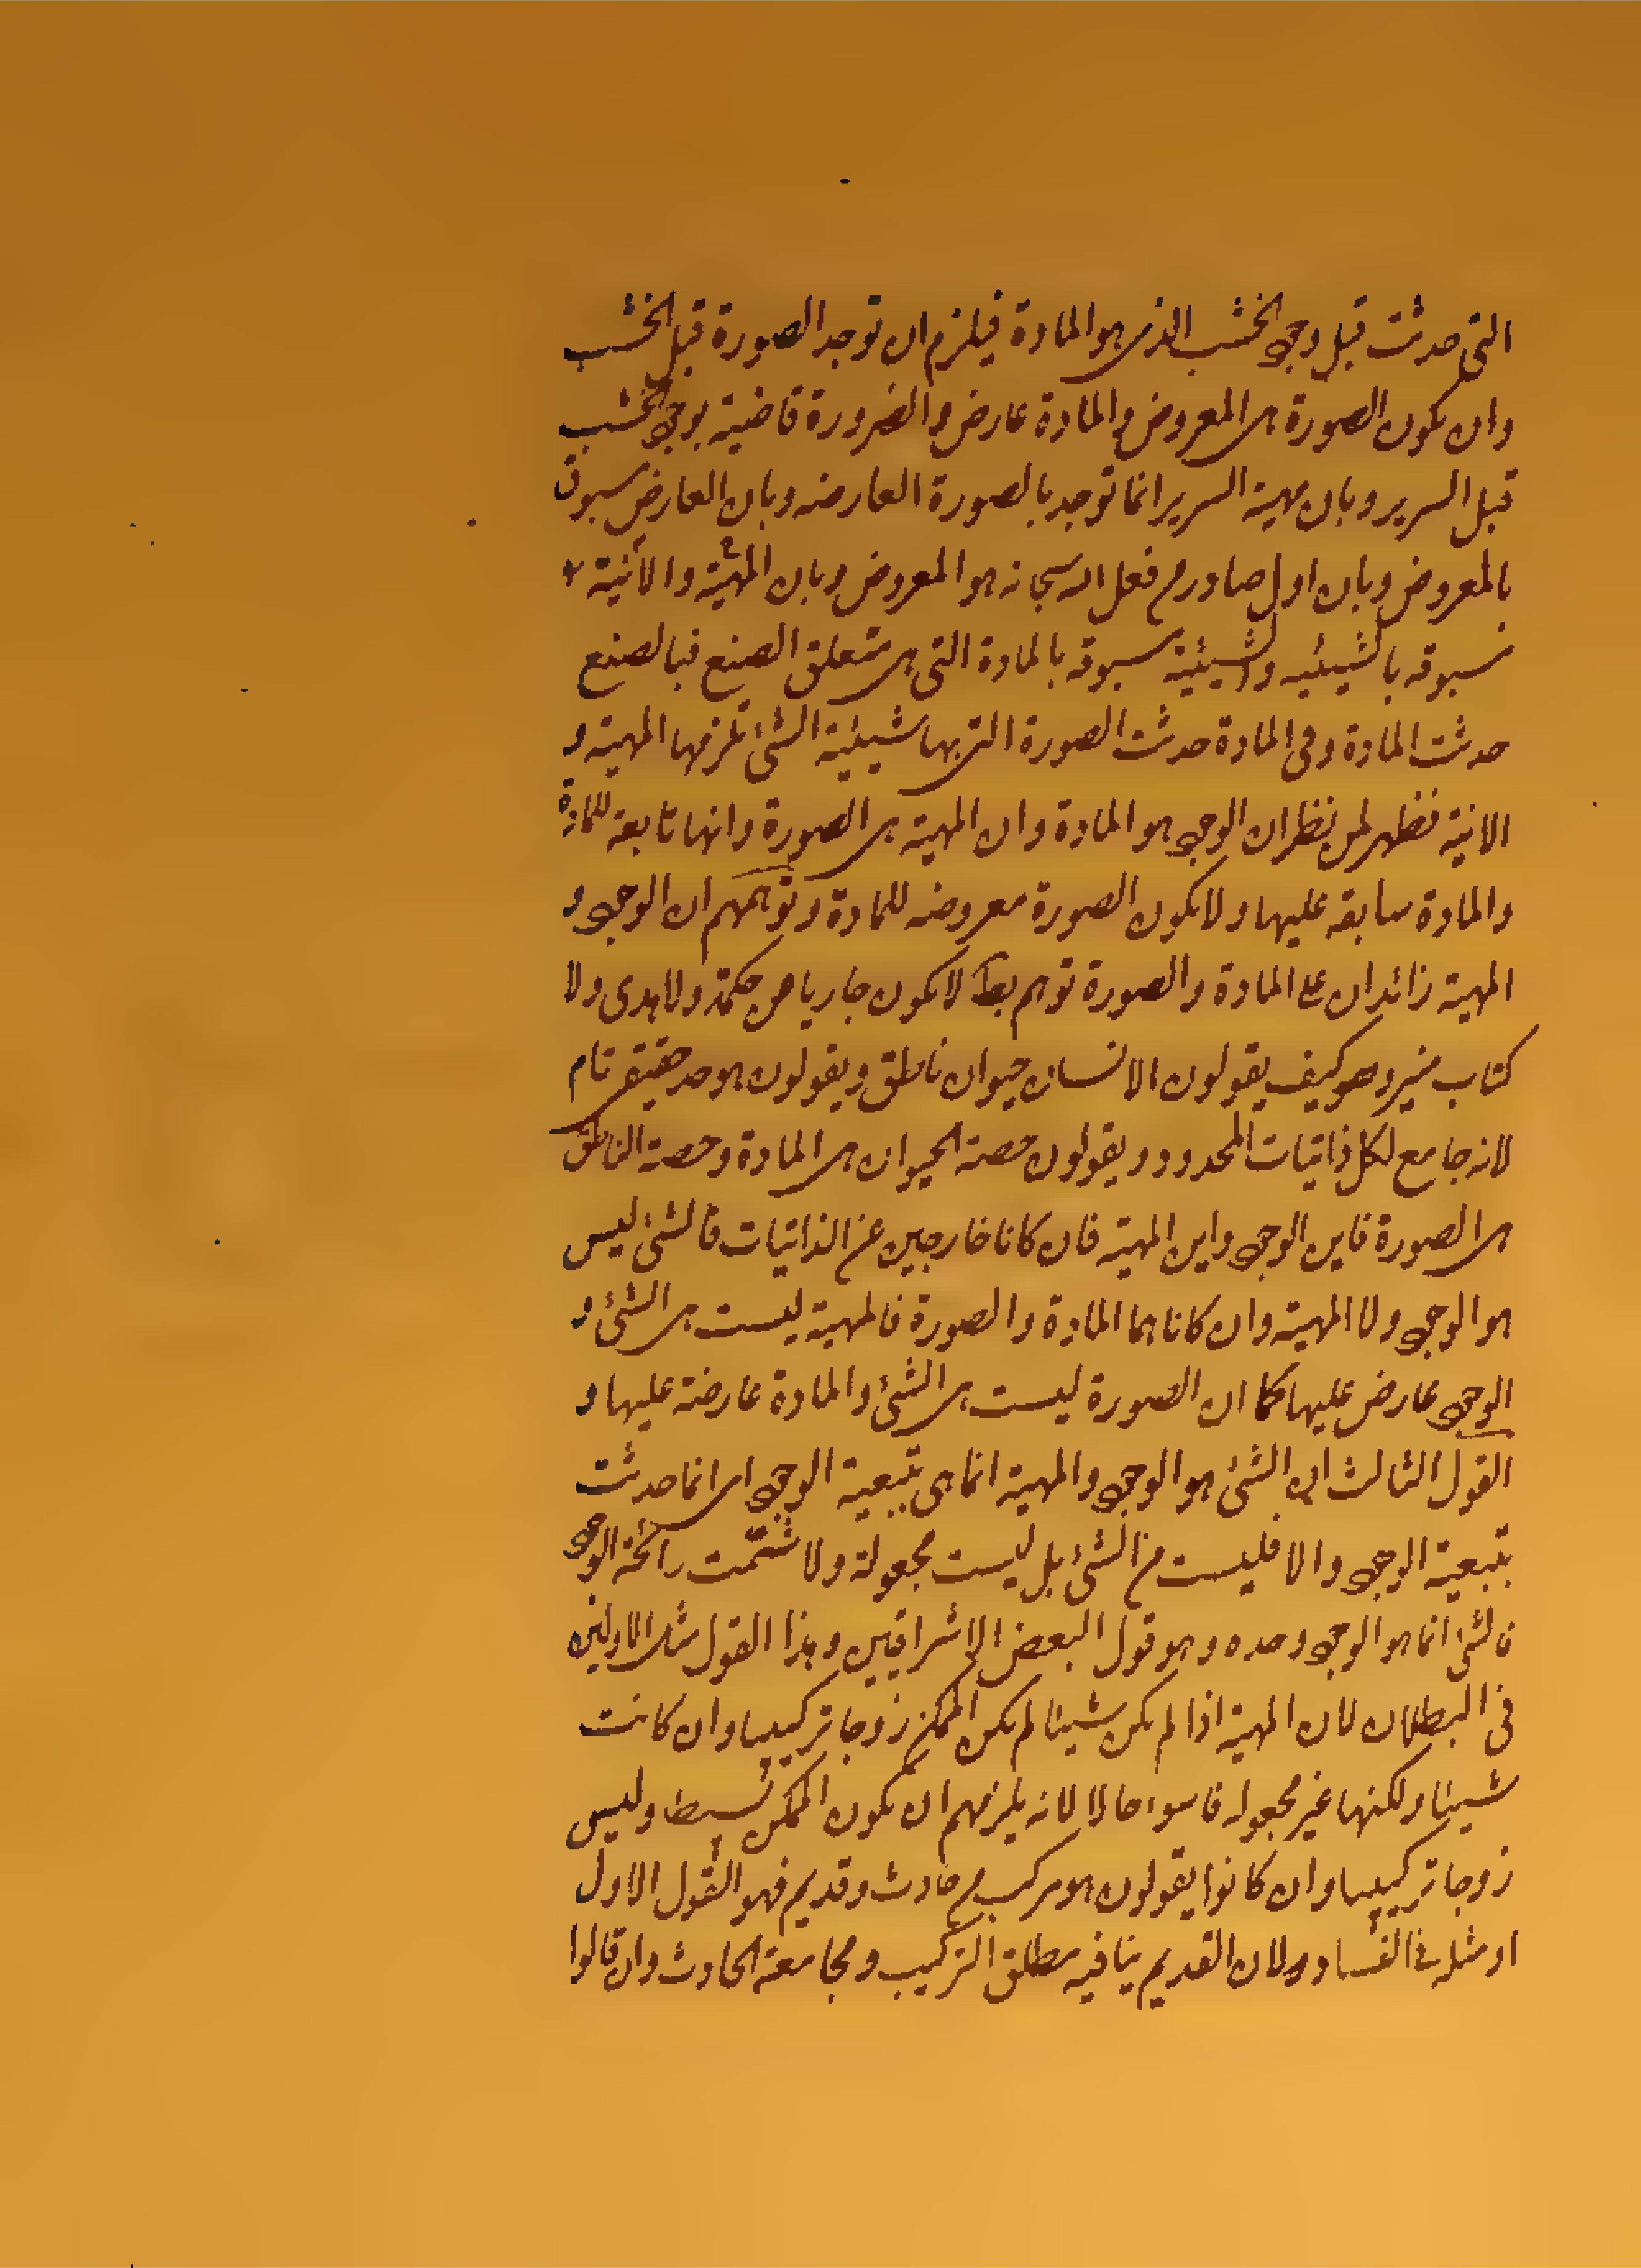 التى حدثت قبل وجود الخشب الذى هو المادة فيلزم ان توجد الصورة قبل الخشب
وان يكون الصورة هى المعروض والمادة عارض والضرورة قاضية بوجود الخشب
قبل السرير وبان مهية السرير انما توجد بالصورة العارضه وبان العارض مسبوق
بالمعروض وبان اول صادر من فعل الله سبحانه هو المعروض وبان المهيّة والأنية
مسبوقه بالشيئيه والشيئية مسبوقه بالمادة التى هى متعلق الصنع فبالصنع
حدثت المادة وفى المادة حدثت الصورة التى بها شيئية الشئ تلزمها المهية و
الانية فظهر لمن نظر ان الوجود هو المادة وان المهية هى الصورة وانها تابعة للمادة
والمادة سابقه عليها ولا يكون الصورة معروضه للمادة وتوهمهم ان الوجود و
المهية زائدان على المادة والصورة توهم بط لا يكون جاريا من حكمة ولا هدى ولا
كتاب منير وهو كيف يقولون الانسان حيوان ناطق ويقولون هو حد حقيقى تام
لانه جامع لكل ذاتيات المحدود ويقولون حصة الحيوان هى المادة وحصة الناطق
هى الصورة فاين الوجود واين المهية فان كانا خارجين عن الذاتيات فالشئ ليس
هو الوجود ولا المهية وان كانا هما المادة والصورة فالمهية ليست هى الشئ و
الوجود عارض عليها كما ان الصورة ليست هى الشئ والمادة عارضة عليها و
القول الثالث ان الشئ هو الوجود والمهية انما هى بتبعية الوجود اى انما حدثت
بتبعية الوجود والا فليست من الشئ بل ليست مجعولة ولا شمّت رائحة الوجود
فالشئ انما هو الوجود وحده وهو قول البعض الاشراقيين وهذا القول مثل الاولين
فى البطلان لان المهية اذا لم يكن شيئا لم يكن الممكن زوجا تركيبيا وان كانت
شيئا ولكنها غير مجعوله فاسوء حالا لانه يلزمهم ان يكون الممكن بسيطا وليس
زوجا تركيبيا وان كانوا يقولون هو مركب من حادث وقديم فهو القول الاول
او مثله فى الفساد ولان القديم ينافيه مطلق التركيب ومجامعة الحادث وان قالوا